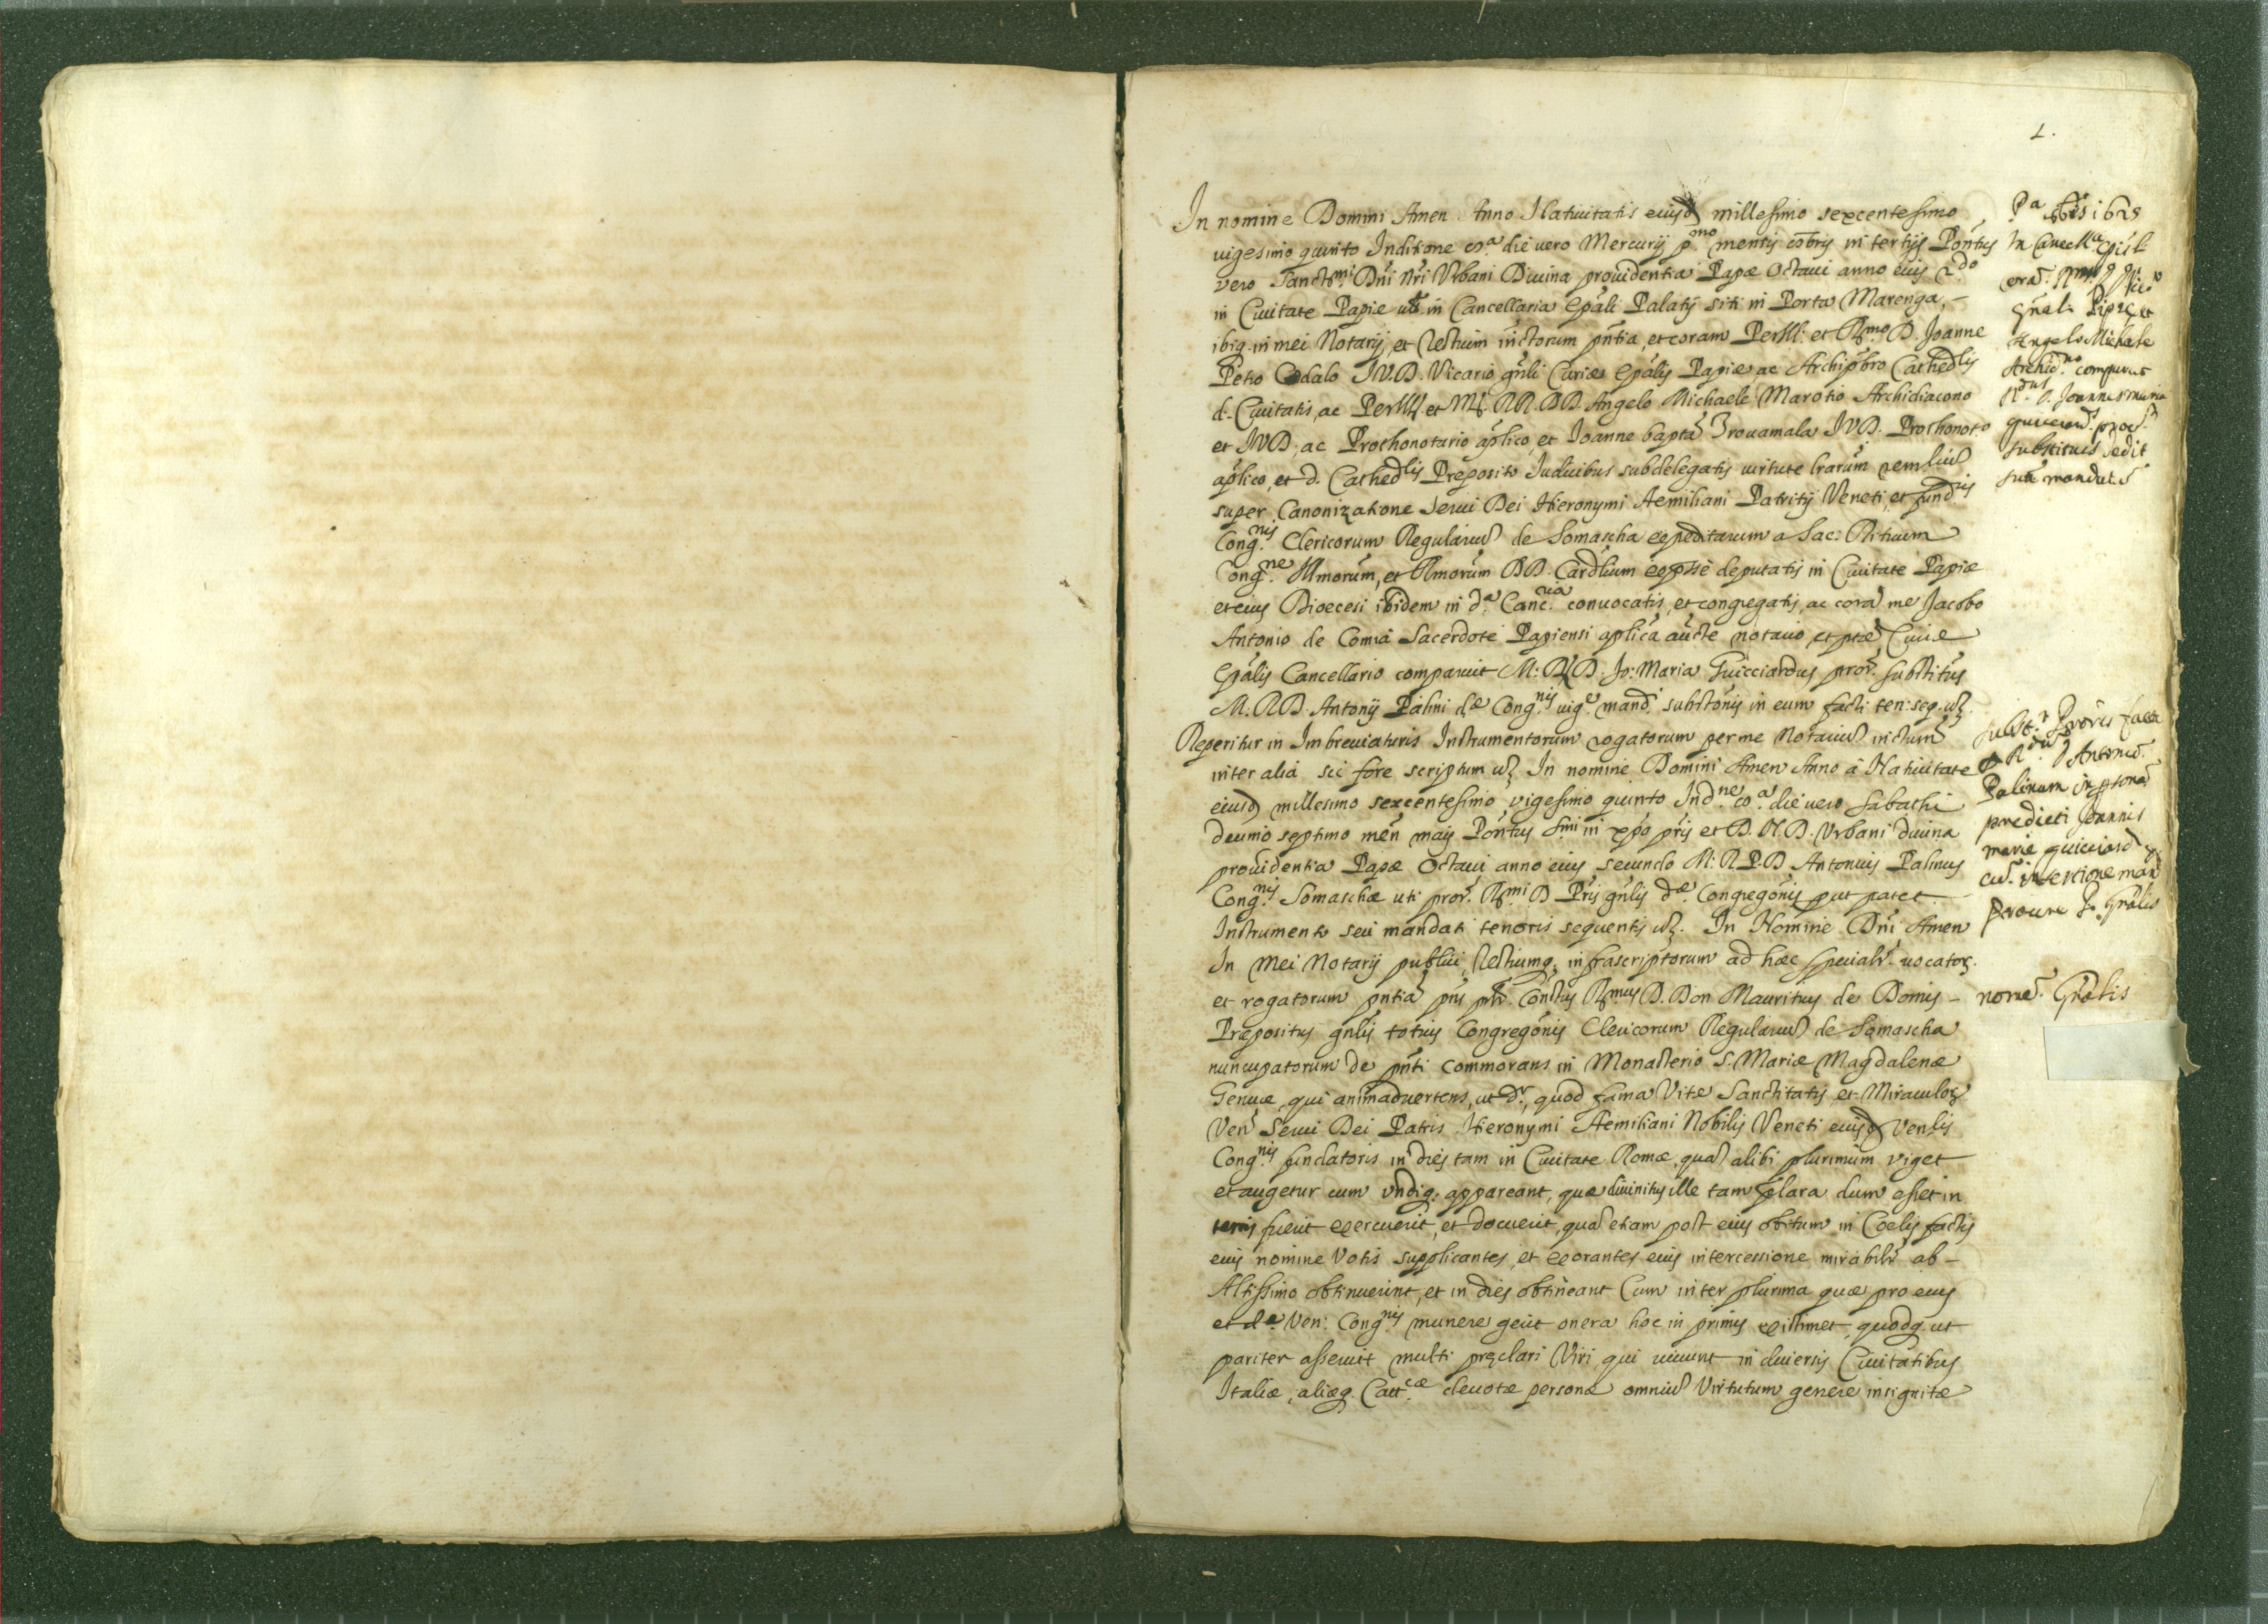 1.
In nomine Domini Amen Anno Nativitatis eiusd millesimo sexcentesimo
vigesimo quinto Inditione 8.a die vero Mercurij p.mo mensis 8bris in tertijs Pontus
vero Sanct.mi Dni Nri Vrbani Divina providentia Papæ Octavi anno eius 2.do
in Civitate Papiæ in Cancellaria Epali Palatij siti in Porta Marenga, –
ibiq. in mei Notarij, et Testium inctorum pntia, et coram PerIll: et R.mo D. Joanne
Petro JV.D. Vicario gnli Curiæ Epalis Papiæ ac Archipbro Cathedlis
d. Civitatis, ac PerIll. et M. RR. DD. Angelo Michaele Marotio Archidiacono
et JVD, ac Prothonotario aplico, et Joanne bapta Trovamala JVD. Prothonot.o
aplico, et d. Cathedlis Preposito Iudicibus subdelegatis virtute lrarum
super Canonizatione Servi Dei Hieronymi Aemiliani Patritij Veneti, et fund.ris
Cong.nis Clericorum Regulariu de Somascha expeditarum a Sac: Rituum
Cong.ne Illmorum, et Rmorum DD. Cardlium deputatis in Civitate Papiæ
et eius Dioecesi ibidem in d.a Canc.ria convocatis, et congregatis, ac cora me Jacobo
Antonio de Comia Sacerdote Papiensi aplica aucte notario, et Curiæ
Epalis Cancellario comparuit M: R. D. Jo: Maria Guicciardus pror. substitus
M. R. D. Antonij Palini d.æ Cong.nis vig.e mand. substonis in eum facti ten: seq. vz
Reperitur in Imbreviaturis Instrumentorum rogatorum per me Notariu inctum
inter alia sic fore scriptum vz In nomine Domini Amen Anno à Nativitate
eiusd millesimo sexcentesimo vigesimo quinto Ind.ne 8.a die vero Sabathi
decimo septimo men maij Pontus S.mi in xpo pris et D. N. D. Vrbani divina
providentia Papæ Octavi anno eius secundo M: R. P. D Antonius Palinus
Cong.nis Somaschæ uti pror. R.mi D Pris gnlis d.æ Congregonis put patet
Instrumento seu mandati tenoris sequentis vz. In Nomine Dni Amen
In Mei Notarij publici, Testiumq. infrascriptorum ad hæc specialr. vocator.
et rogatorum pntia pns Constus R.mus D. Don Mauritius de Domis –
Præpositus gnlis totius Congregonis Clericorum Regulariu de Somascha
nuncupatorum de pnti commorans in Monasterio S. Mariæ Magdalenæ
Genuæ, qui animadvertens, ut d.r, quod fama Vitæ Sanctitatis, et Miraculor
Ven Servi Dei Patris Hieronymi Aemiliani Nobilis Veneti eiusd Venlis
Cong.nis fundatoris in dies tam in Civitate Romæ, qua alibi plurimum viget
et augetur cum undiq. appareant, quæ divinitus ille tam plara dum esset in
terris fuerit exercuerit, et docuerit, qua etiam post eius obitum in Coelis factis
eius nomine Votis supplicantes, et exorantes eius intercessione mirabilr ab –
Altissimo obtinuerint, et in dies obtineant Cum inter plurima quæ pro eius
et d.æ Ven: Cong.nis munere gerit onera hoc in primis existimet, quodq. ut
pariter asseruit multi pręclari Viri qui vivunt in diversis Civitatibus
Italiæ, aliæq. Catt.cæ devotæ personæ omniu Virtutum genere insignitæ
P.a 8bris 1625
In Cancell.a Episl
Angelo Michaele
Archid.no comparuit
R.dus D. Joannes maria
substitus dedit
sua mandata
Antoniu.
Palinum in psona
predicti Joannis
marie
cu. insertione man
nome. Gnalis